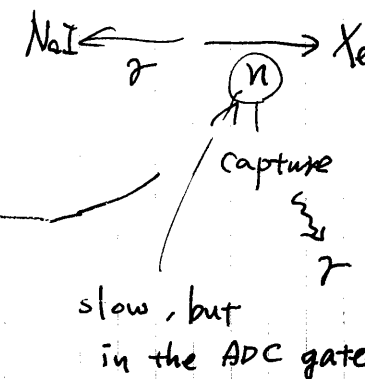 NaI γ Xe
n
capture
γ
slow, but
in the ADC gate